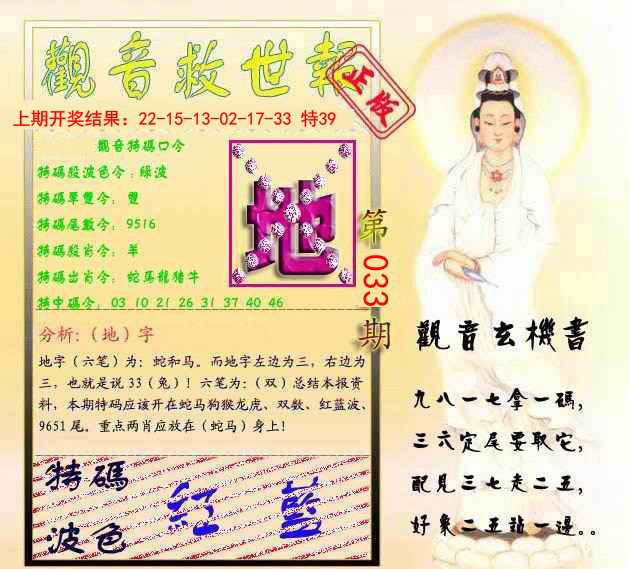 觀音救世報
正版
上期开奖结果：22-15-13-02-17-33 特39
觀音特碼口令
特碼殺波色令：綠波
特碼單雙令：雙
特碼尾數令：9516
特碼殺肖令：羊
特碼出肖令：蛇馬龍猪牛
特中碼令：03 10 21 26 31 37 40 46
地
第033期
分析:（地）字
地字（六笔）为：蛇和马。而地字左边为三，右边为
三，也就是说 33（兔）！六笔为：（双）总结本报资
料，本期特码应该开在蛇马狗猴龙虎、双数、红蓝波、
9651 尾。重点两肖应放在（蛇马）身上！
特碼
波色
紅 藍
觀音玄機書
九八一七拿一碼，
三六定尾要取它，
配見三七走二五，
好象二五站一邊。。